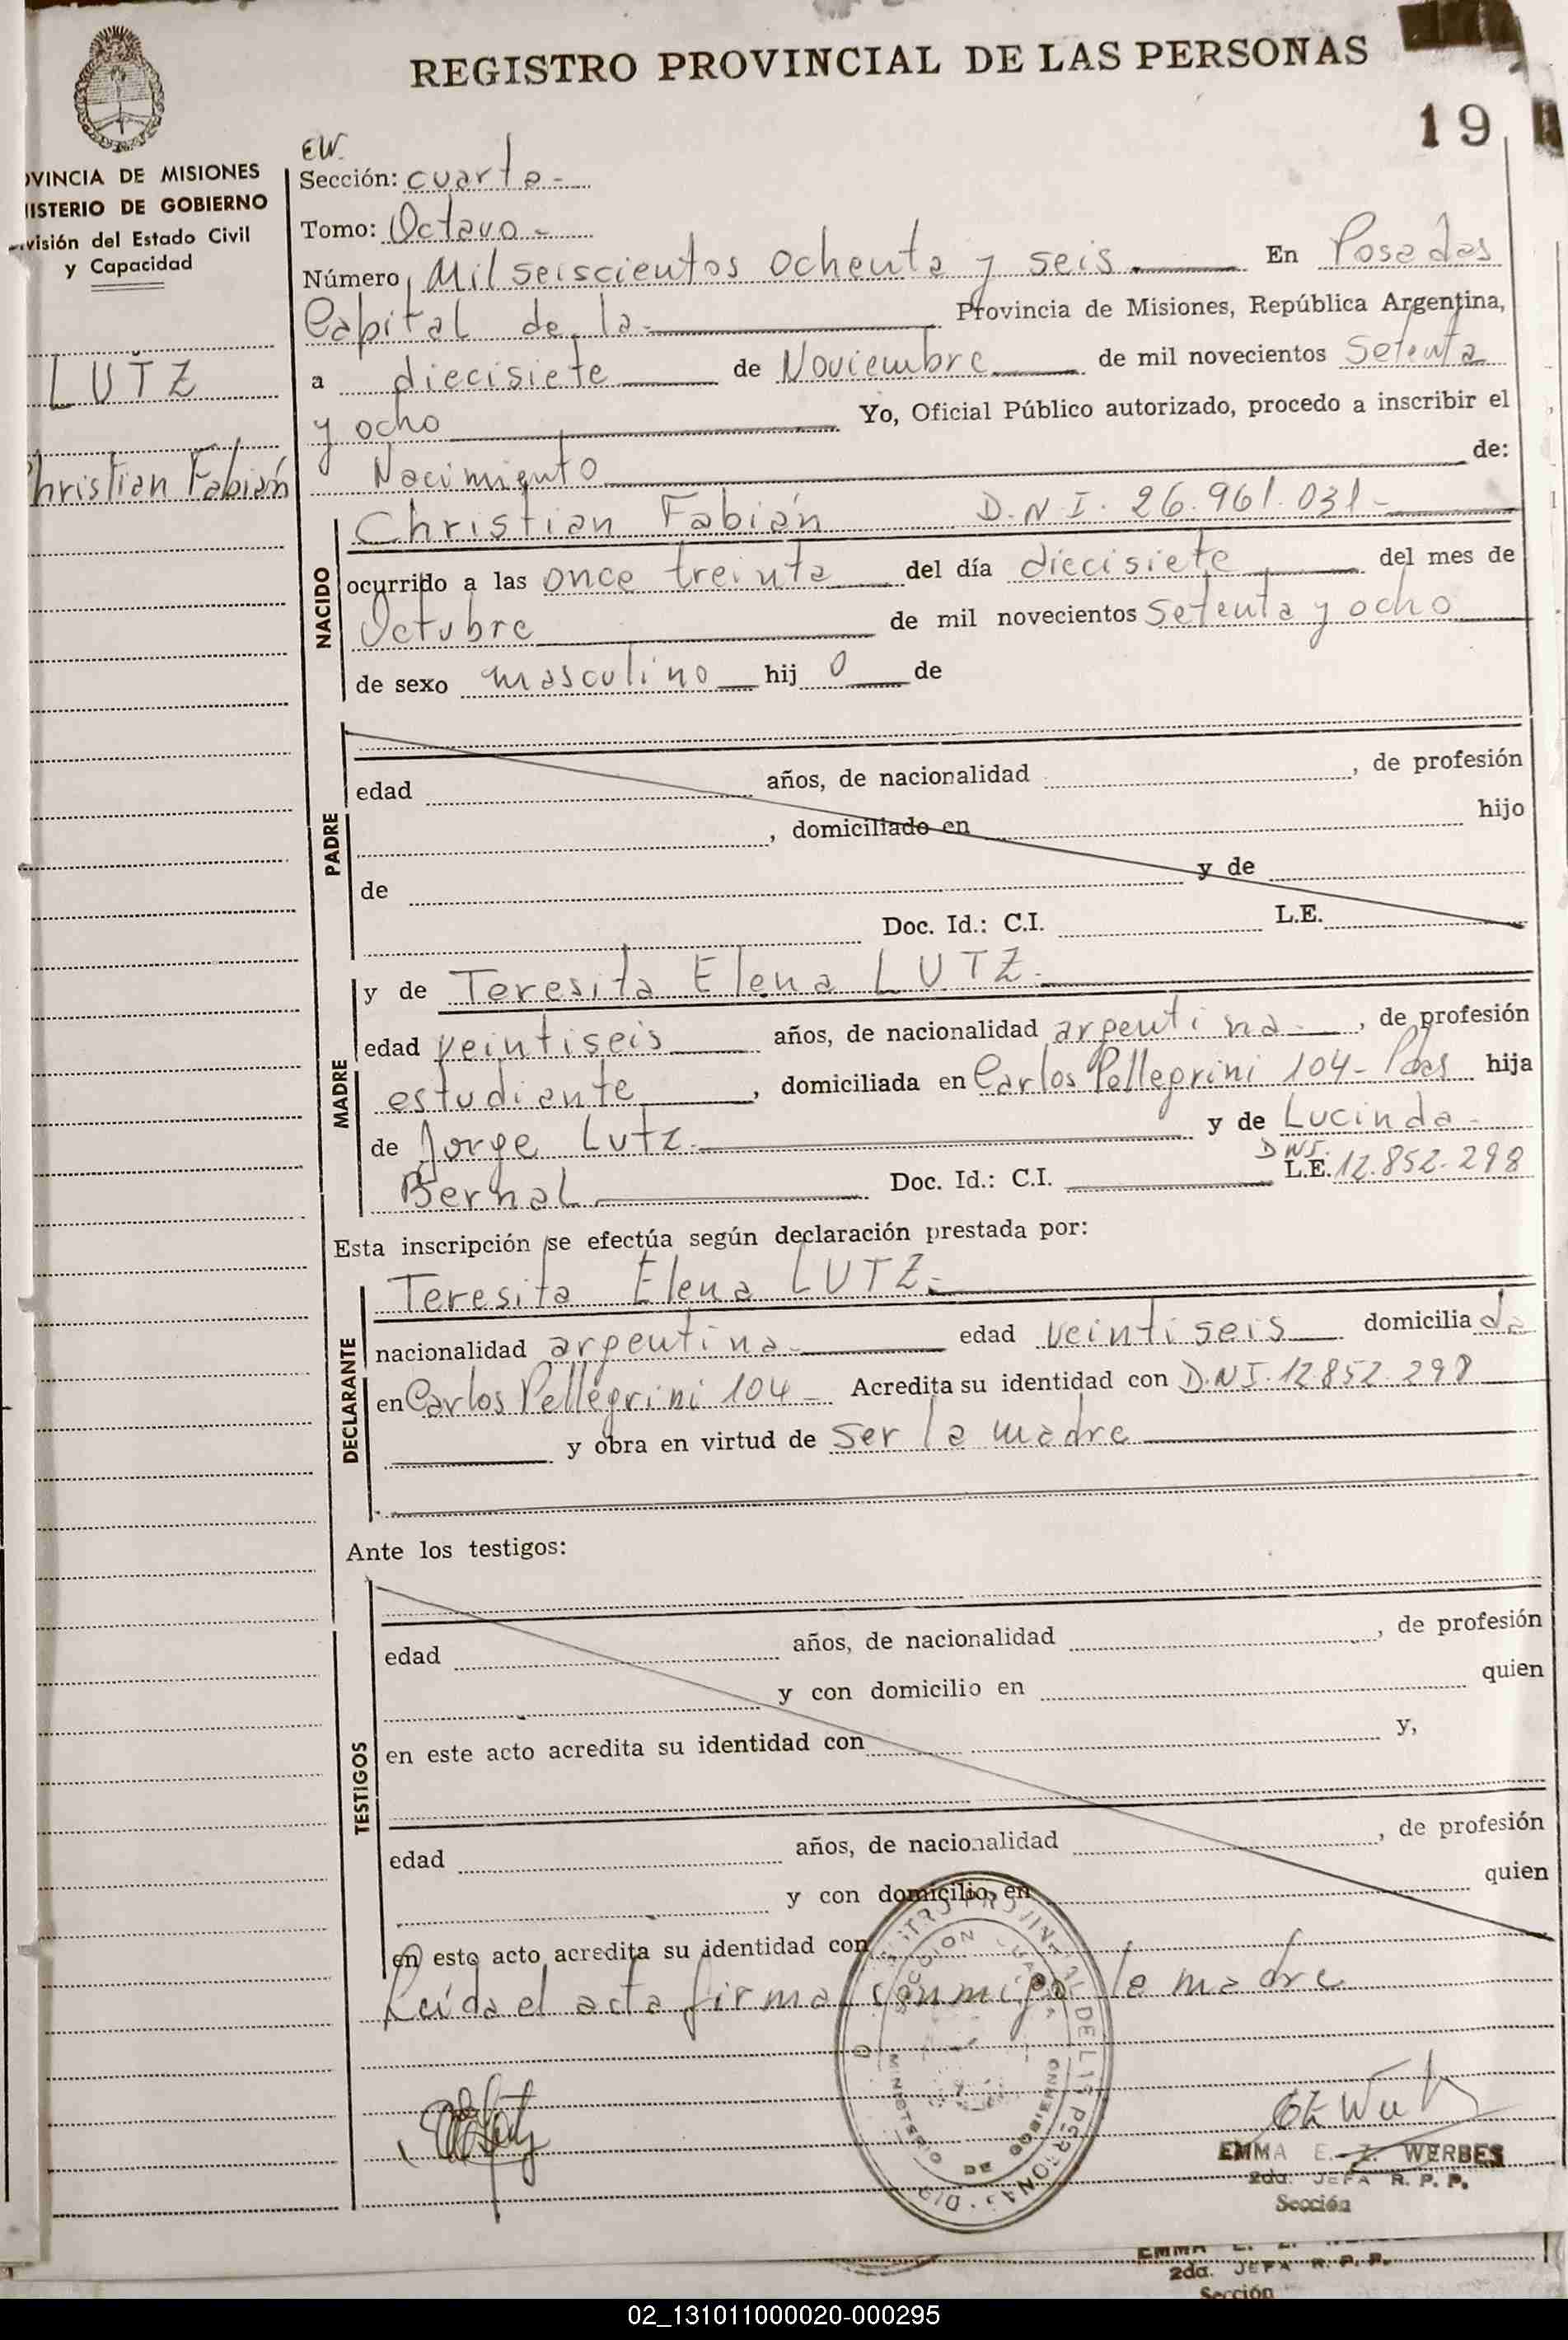 REGISTRO PROVINCIAL DE LAS PERSONAS
19
OVINCIA DE MISIONES
NISTERIO DE GOBIERNO
visión del Estado Civil
y Capacidad
LUTZ
Christian Fabián
EW.
Sección: cuarta-
Tomo: Octavo-
Número, Mil seiscientos ochenta y seis. En Posadas
Capital de la- Provincia de Misiones, República Argentina,
a diecisiete de Noviembre de mil novecientos Setenta
y ocho Yo, Oficial Público autorizado, procedo a inscribir el
Nacimiento de:
NACIDO
Christian Fabián D.N.I. 26.961.031-
ocurrido a las once treinta del día diecisiete del mes de
Octubre de mil novecientos setenta y ocho
de sexo masculino hij o de
PADRE
edad años, de nacionalidad , de profesión
, domiciliado en hijo
de y de
Doc. Id.: C.I. L.E.
MADRE
y de Teresita Elena LUTZ.
edad veintiseis años, de nacionalidad argentina , de profesión
estudiante , domiciliada en Carlos Pellegrini 104- Pdas hija
de Jorge Lutz. y de Lucinda-
Bernal Doc. Id.: C.I. DNI. L.E. 12.852.298
Esta inscripción se efectúa según declaración prestada por:
DECLARANTE
Teresita Elena LUTZ.
nacionalidad argentina edad veintiseis domicilia da
en Carlos Pellegrini 104- Acredita su identidad con D.N.I. 12.852.298
y obra en virtud de ser la madre
Ante los testigos:
TESTIGOS
edad años, de nacionalidad , de profesión
y con domicilio en quien
en este acto acredita su identidad con y,
edad años, de nacionalidad , de profesión
y con domicilio en quien
en esto acto acredita su identidad con
Leída el acta firma conmigo la madre
MINISTERIO DE GOBIERNO
EMMA E. Z. WERBES
2da. JEFA R. P. P.
Sección
EMMA E. Z.
2da. JEFA R. P. P.
Sección
02_131011000020-000295